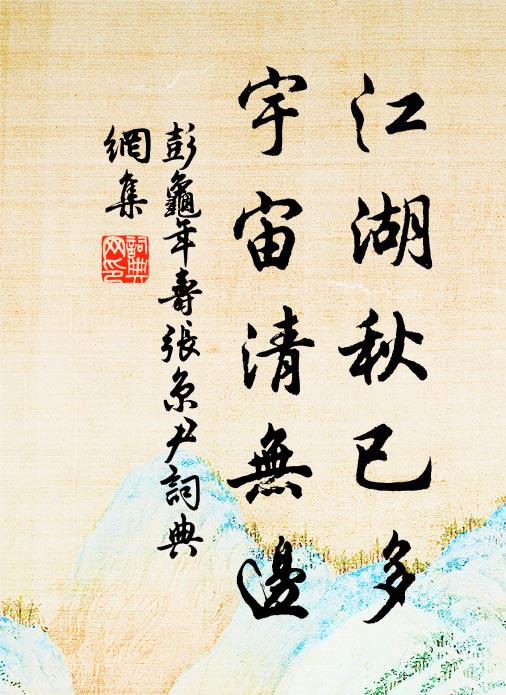 江湖秋已多
宇宙清無邊
彭龜年壽張京尹詞典
網集
詞典
网印